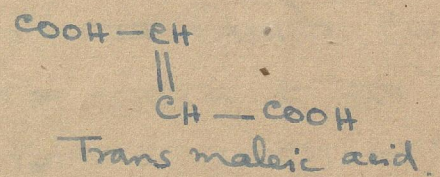 COOH — CH
||
CH — COOH
Trans maleic acid.